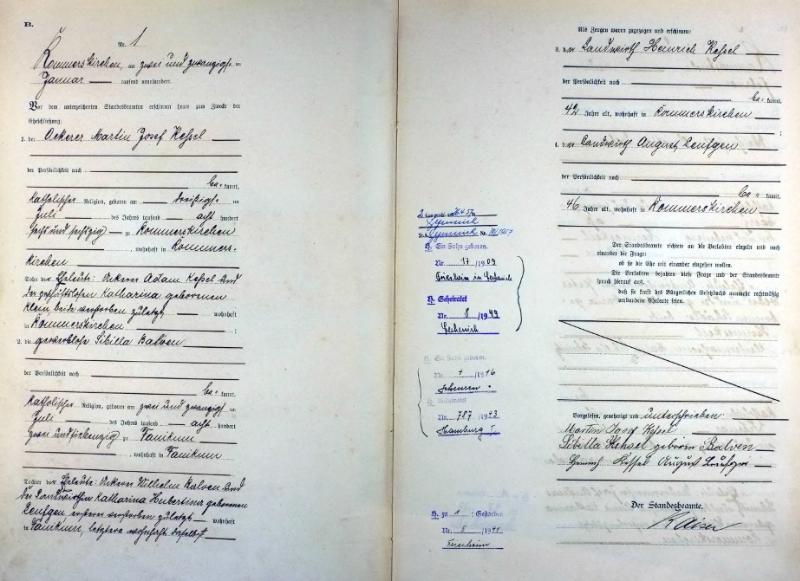 B.
Nr. 1
Rommerskirchen, am zwei und zwanzigsten
Januar tausend neunhundert.
Vor dem unterzeichneten Standesbeamten erschienen heute zum Zweck der
Eheschließung:
1. der Ackerer Martin Josef Kessel
der Persönlichkeit nach
be kannt,
katholischer Religion, geboren am dreißigsten
Juli des Jahres tausend acht hundert
sechs und sechszig zu Rommerskirchen
, wohnhaft in Rommers-
kirchen
Sohn der Eheleute: Ackerer Adam Kessel und
der geschäftslosen Katharina geborenen
Klein beide verstorben zuletzt wohnhaft
in Rommerskirchen ;
2. die gewerblose Sibilla Balven
der Persönlichkeit nach
be kannt,
katholischer Religion, geboren am zwei und zwanzigsten
Juli des Jahres tausend acht hundert
zwei und siebenzig zu
, wohnhaft in
Tochter der Eheleute: Ackerer Wilhelm Balven und
der Katharina Hubertina geborenen
Zenfgen ersterer verstorben zuletzt wohnhaft
in , letztere wohnhaft daselbst
H. Ein Sohn geboren.
Nr. 17 /1909
H. Geheiratet
Nr. 8 /1949
Lechenich
H. Ein Sohn geboren.
Nr. 1 /1916
Nr. 787 /1943
Hamburg I
H. zu 1 : Gestorben
Nr. 8 /19
Als Zeugen waren zugezogen und erschienen:
3. der Landwirth Heinrich Kessel
der Persönlichkeit nach
be kannt,
42 Jahre alt, wohnhaft in Rommerskirchen
;
4. der Landwirth August Zenfgen
der Persönlichkeit nach
be kannt,
46 Jahre alt, wohnhaft in Rommerskirchen
Der Standesbeamte richtete an die Verlobten einzeln und nach
einander die Frage:
ob sie die Ehe mit einander eingehen wollen.
Die Verlobten bejahten diese Frage und der Standesbeamte
sprach hierauf aus,
daß sie kraft des Bürgerlichen Gesetzbuchs nunmehr rechtmäßig
verbundene Eheleute seien.
Vorgelesen, genehmigt und unterschrieben
Martin Josef Kessel
Sibilla Kessel geboren Balven
Heinrich Kessel August Zenfgen
Der Standesbeamte.